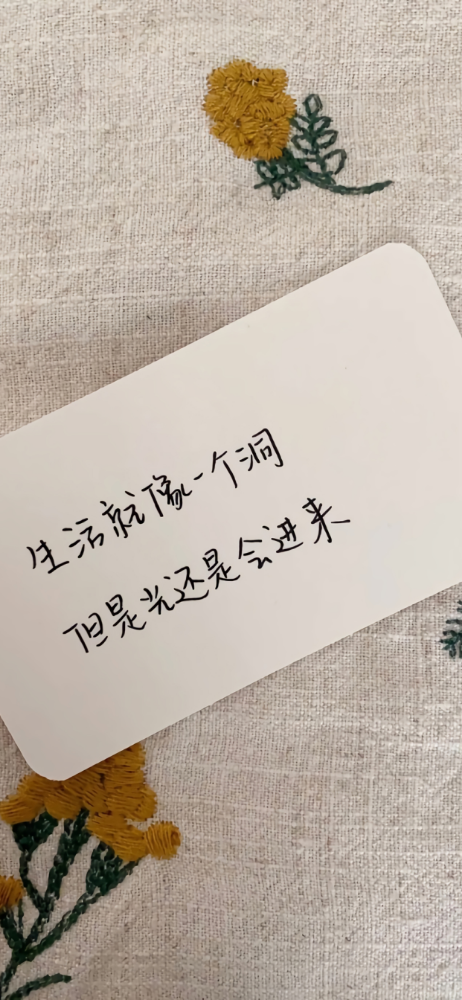 生活就像一个洞
但是光还是会进来